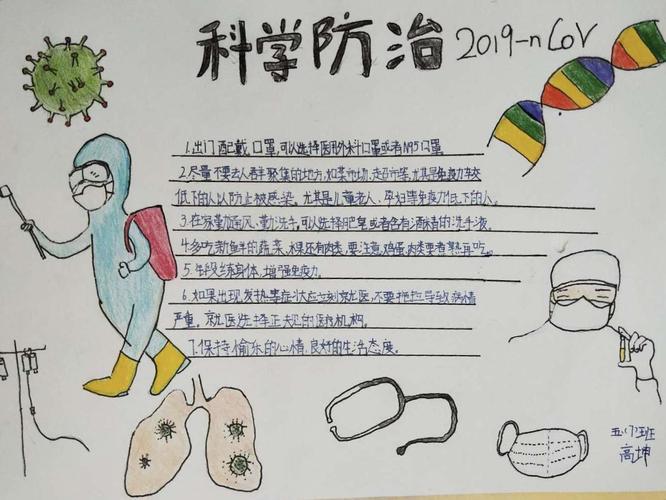 科学防治 2019-nCoV
1.出门配戴口罩,可以选择医用外科口罩或者N95口罩
2.尽量不要去人群聚集的地方,如菜市场,超市等,尤其是免疫力较
低下的人以防止被感染。尤其是儿童老人、孕妇等免疫力低下的人。
3.在家勤通风、勤洗手,可以选择肥皂或者含有酒精的洗手液。
4.多吃新鲜的蔬菜、水果还有肉类,要注意,鸡蛋,肉类要煮熟再吃。
5.锻练身体,增强免疫力。
6.如果出现发热等症状应立刻就医,不要拖拉导致病情
严重。就医选择正规的医疗机构。
7.保持愉乐的心情,良好的生活态度。
五(7)班
高坤